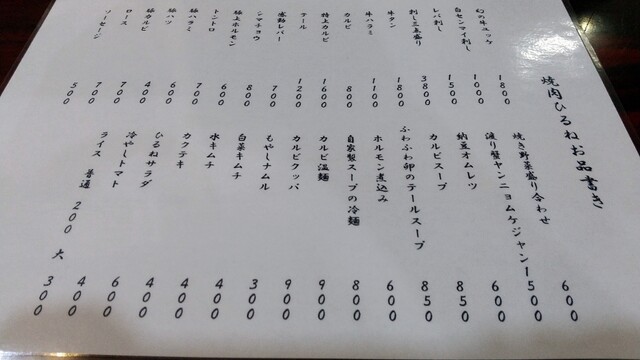 焼肉ひるねお品書き
幻の牛ユッケ 1800
白センマイ刺し 1000
レバ刺し 1500
刺し三点盛り 3800
牛タン 1800
牛ハラミ 1100
カルビ 800
特上カルビ 1600
テール 1200
感動レバー 700
シマチョウ 800
極上ホルモン 600
トントロ 700
豚ハラミ 600
豚ハツ 400
豚カルビ 700
ロース 700
ソーセージ 500
焼き野菜盛り合わせ 600
渡り蟹ヤンニョムケジャン 1500
納豆オムレツ 600
カルビスープ 850
ふわふわ卵のテールスープ 850
ホルモン煮込み 600
自家製スープの冷麺 800
カルビ温麺 900
カルビクッパ 900
もやしナムル 300
白菜キムチ 400
水キムチ 400
カクテキ 400
ひるねサラダ 600
冷やしトマト 400
ライス 普通 200 大 300